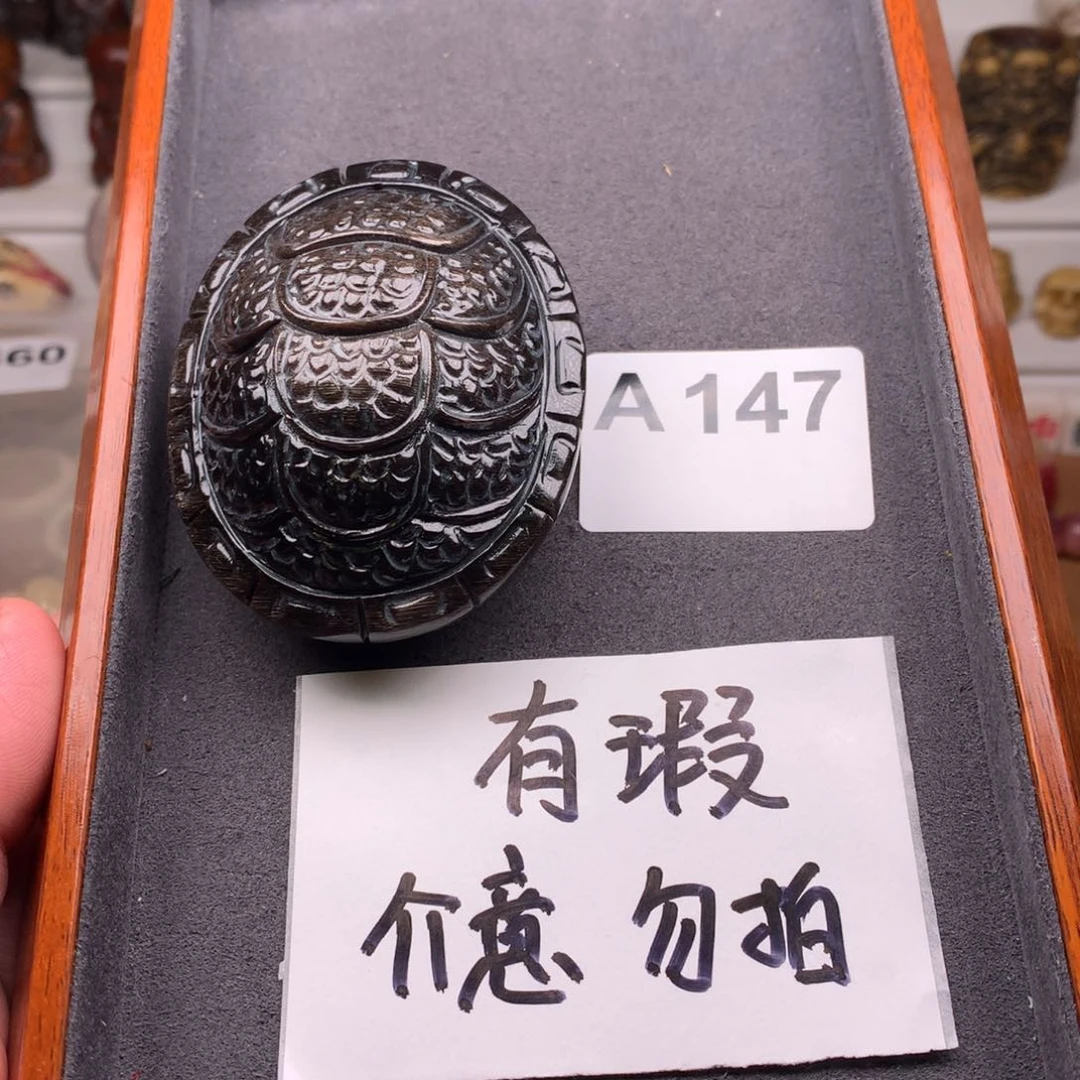 A147
有瑕
介意 勿拍